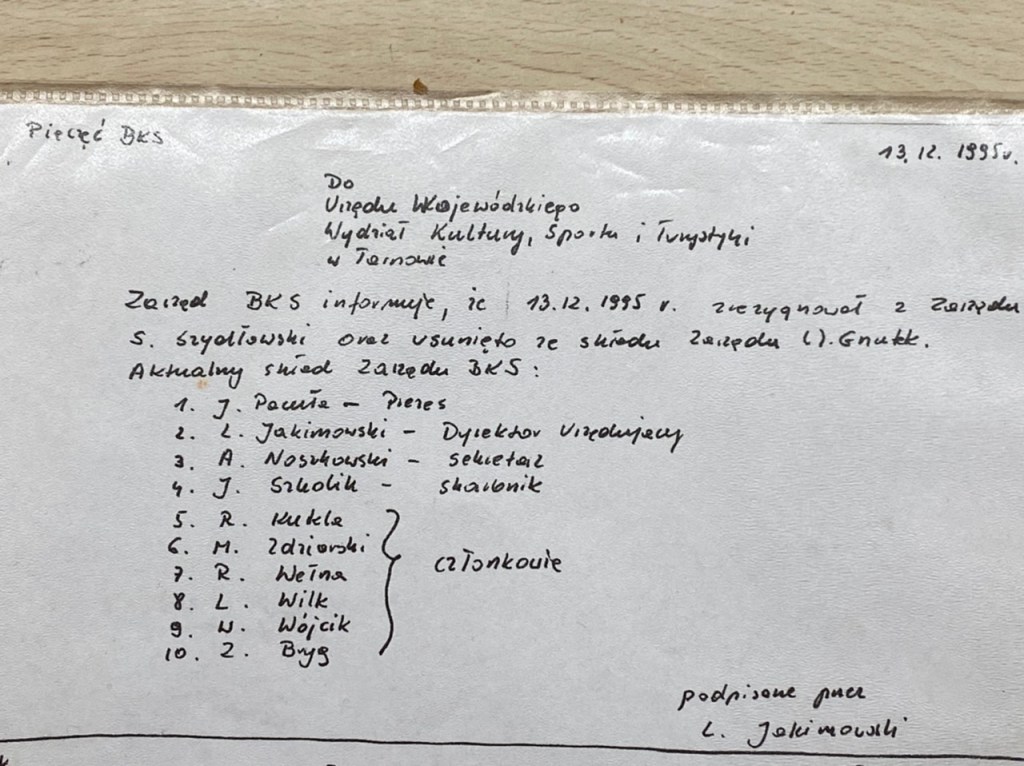 Pieczęć BKS
13.12.1995r.
Do
Urzędu Wojewódzkiego
Wydział Kultury, Sportu i Turystyki
w Tarnowie
Zarząd BKS informuje, że 13.12.1995 r. zrezygnował z Zarządu
S. Szydłowski oraz usunięto ze składu Zarządu W. Gnutk.
Aktualny skład Zarządu BKS:
1. J. Pacuła - Prezes
2. L. Jakimowski - Dyrektor Urzędujący
3. A. Noszkowski - sekretarz
4. J. Szkolik - skarbnik
5. R. Kukla
6. M. Zdziarski
7. R. Wełna
8. L. Wilk
9. W. Wójcik
10. Z. Bryg
członkowie
podpisane przez
L. Jakimowski